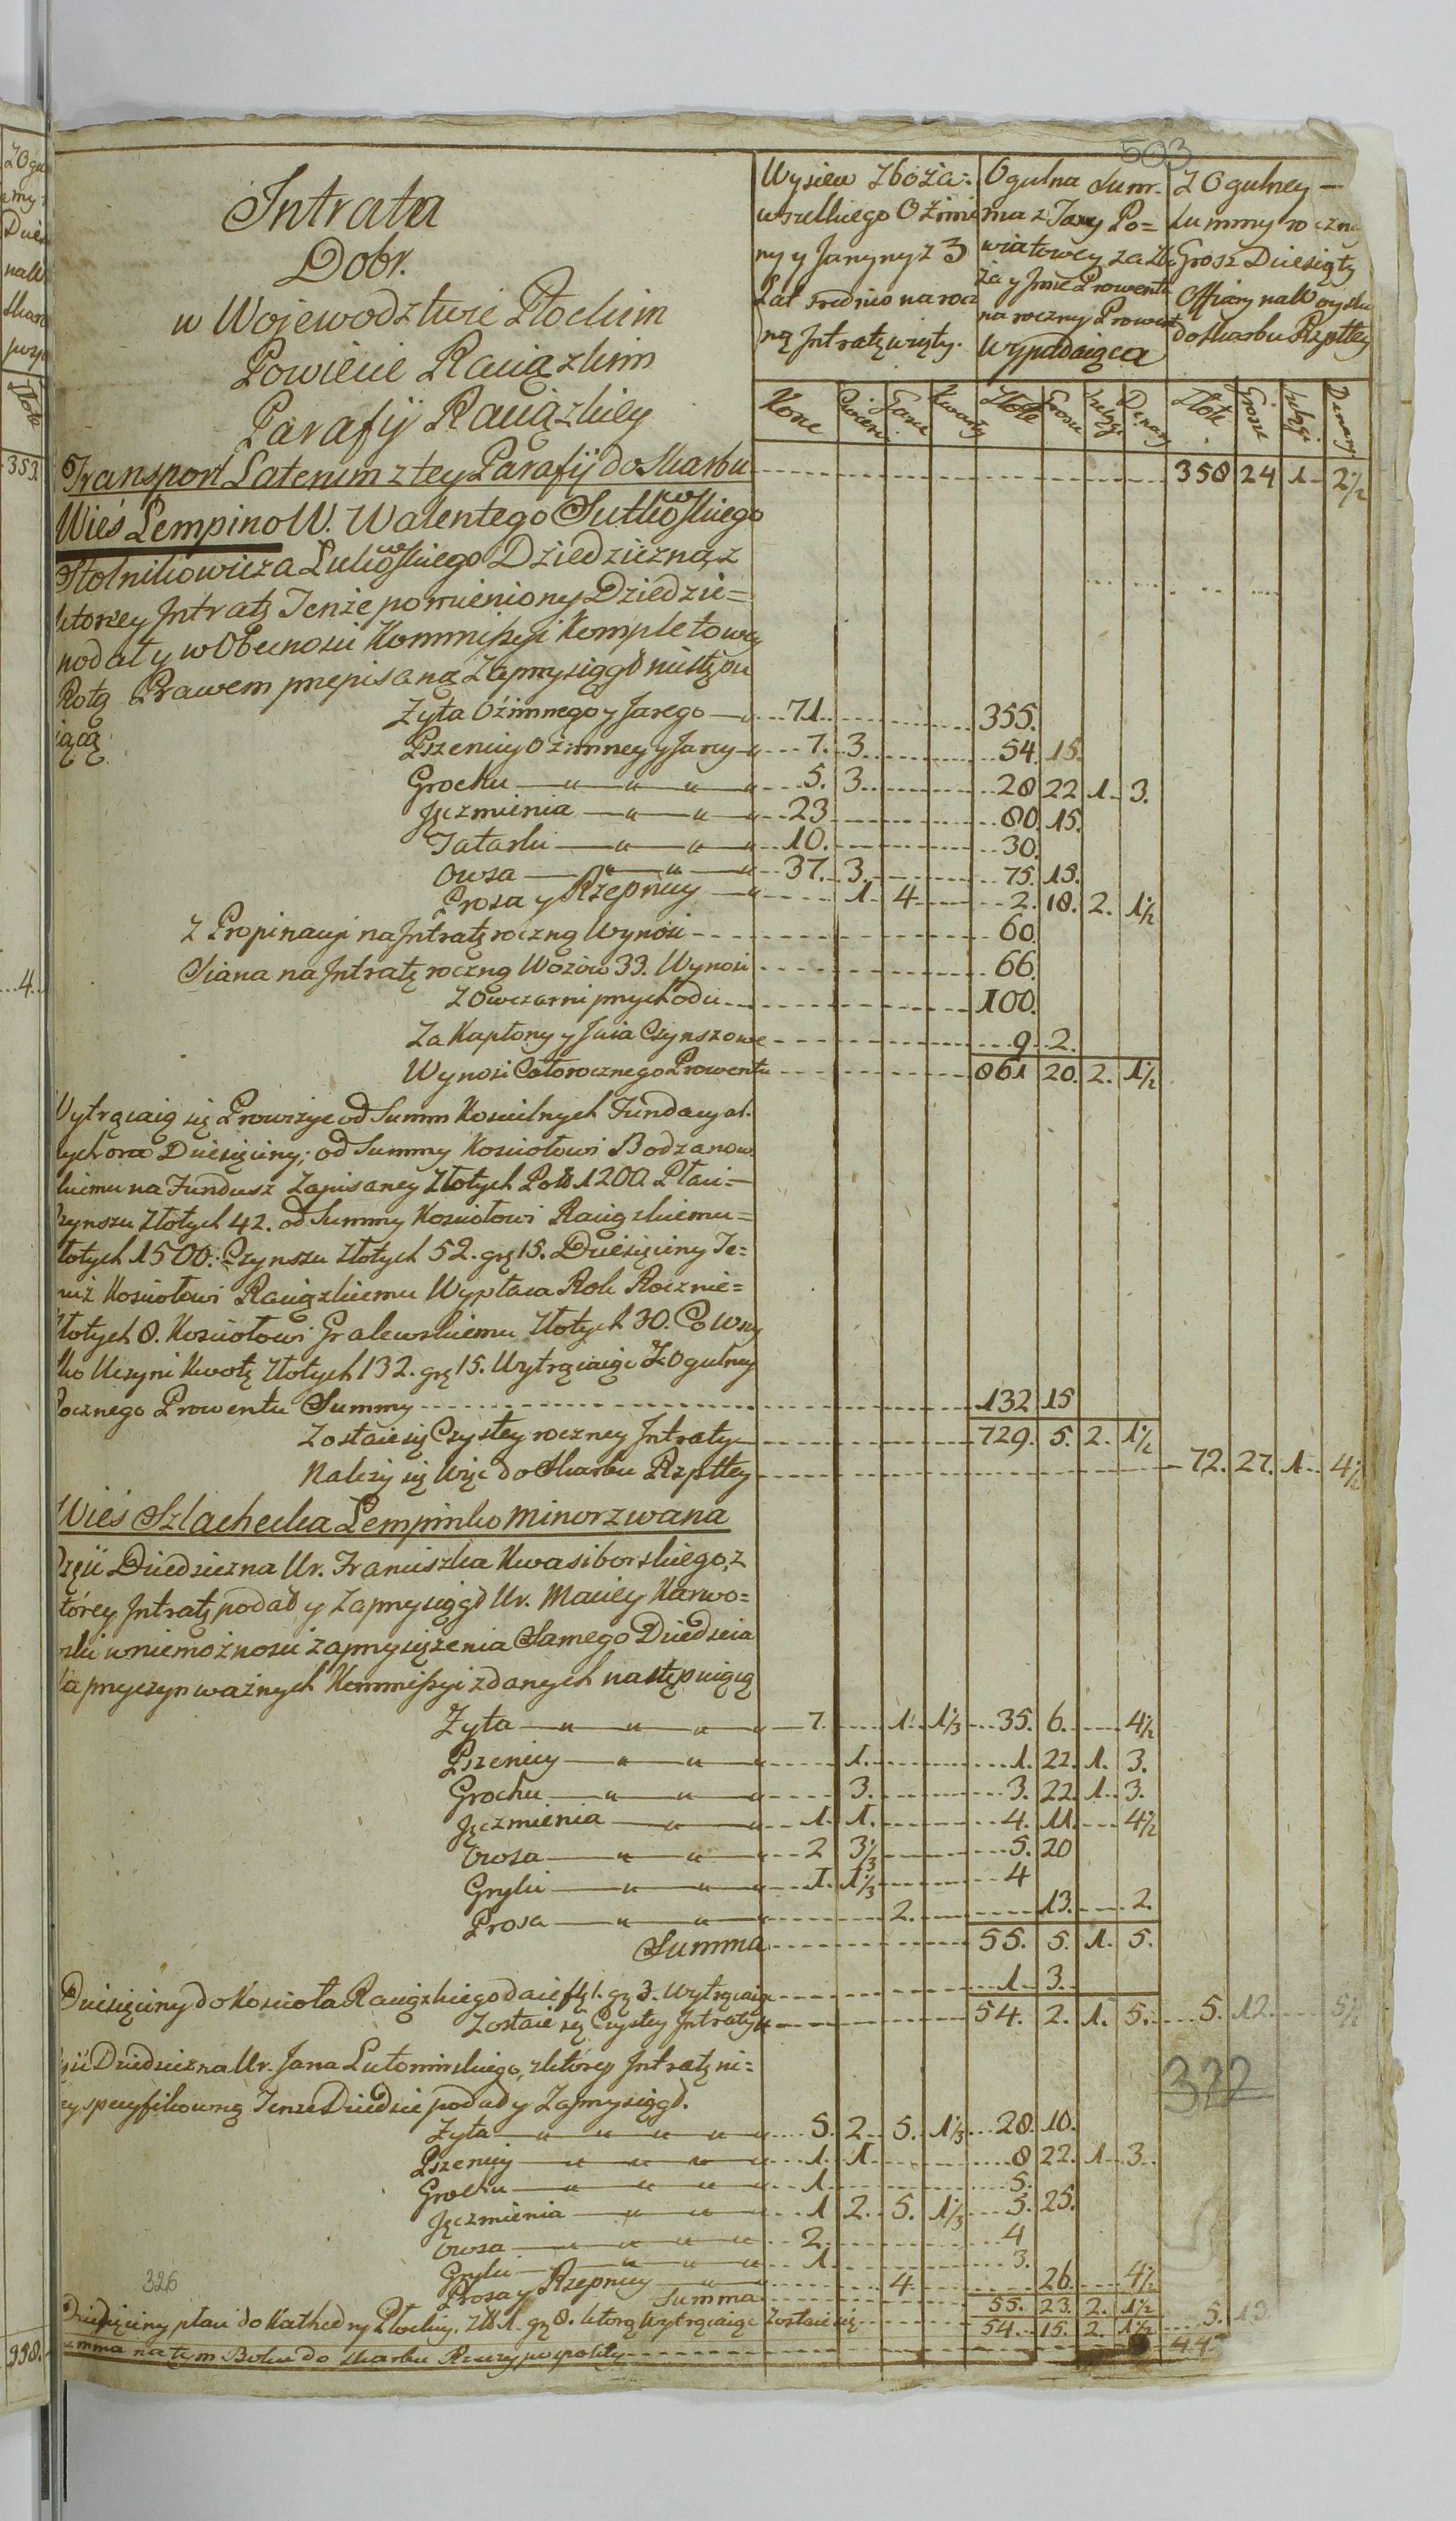 503
Intrata
Dobr.
w Wojewodztwie Płockim
Powiecie Raciązkim
Parafij Raciązkiey
Wysiew Zboża:
wszelkiego Ozimi
ny y Jaryny z 3
Lat srednio na rocz
ną Intratę wzięty.
Ogulna Sum-
ma z Taxy Po=
wiatowey za Zbo
ża y Jnne Prowenta
na roczny Prowent
wypadaiąca
Z Ogulney —
Summy roczney
Grosz Dziesięty
Offiary na Woysko
do Skarbu Rzptltey
Korce Cwierci Garce Kwarty Złote Grosze Szelągi Denary Złote Grosze Szelągi Denary
Transport Laterum z tey Parafij do Skarbu 358 24 1 2 1/2
Wieś Lempino W. Walentego Sutkowskiego
Stolnikowicza Dziedziczna, z
ktorey Intratę Tenże pomieniony Dziedzic=
podał y w Obecnosci Kommissyi Kompletowey
Rotą Prawem przepisaną Zaprzysiągł nastęṗu
iącą
Zyta Ozimnego y Jarego — 71. 355.
Pszenicy Ozimney y Jarey — 7. 3. 54. 15.
Grochu — 5. 3. 28 22 1. 3.
Jęczmienia — 23 80. 15.
Tatarki — 10. 30.
Owsa — 37. 3. 75. 15.
Prosa y Rzepnicy — 1. 4 2. 18. 2. 1 1/2
Z Propinacyi na Intratę roczną Wynosi - 60.
Siana na Intratę roczną Wozow 33. Wynosi 66.
Z Owczarni przychodu 100.
Za Kapłony y Jaia Czynszowe 9. 2.
Wynosi Całorocznego Prowentu 861 20. 2. 1 1/2
Wytrącaią się Prowizye od Summ Koscielnych Fundacyal.
nych oraz Dziesięciny; od Summy Kosciołowi Bodzanow
skiemu na Fundusz Zapisaney Złotych Pols 1200. Płaci —
Czynszu Złotych 42. od Summy Kosciołowi Raciązkiemu =
Złotych 1500. Czynszu Złotych 52. grę 15. Dziesięciny Te=
muż Kosciołowi Raciązkiemu Wypłaca Rok Rocznie =
Złotych 8. Kosciołowi Gralewskiemu Złotych 30. Co Wszy
stko Uczyni Kwotę Złotych 132. grę 15. Wytrąciaiąc Z Ogulney
Rocznego Prowentu Summy 132 15
Zostaie się Czystey roczney Intraty — 729. 5. 2. 1 1/2
Nalezy się Więc do Skarbu Rzptltey 72. 27. 1. 4 1/2
Wieś Szlachecka Lempinko minor zwana
Częsci Dziedziczna Ur. Franciszka Kwasiborskiego, z
ktorey Intratę podał y Zaprzysiągł Ur. Maciey Karwo=
wski w niemożnosci zaprzysiężenia Samego Dziedzica
Dla przyczyn ważnych Kommissyi zdanych następuiącą
Zyta — 7. 1. 1 1/3 35. 6. 4 1/2
Pszenicy — 1. 1. 22. 1. 3.
Grochu — 3. 3. 22. 1. 3.
Jęczmienia — 1. 1. 4. 11. 4 1/2
Owsa — 2 3 1/3 5. 20
Gryki — 1. 1 1/3 4
Prosa — 2. 13. 2.
Summa 55. 5. 1. 5.
Dziesięciny do Kosciota Raciązkiego daie fl. 1. gr. 3. Wytrąciaiąc 1. 3.
Zostaie się Czystey Intraty 54. 2. 1. 5. 5. 12. 5 1/2
Częsci Dziedziczna Ur. Jana Lutomirskiego, z ktorey Intratę ni=
żey specyfikowaną Tenże Dziedzic podał y Zaprzysiągł.
322
Zyta — 5. 2. 5. 1 1/3 28. 10.
Pszenicy — 1. 1 8 22. 1. 3.
Grochu — 1 5.
Jęczmienia — 1 2. 5. 1 1/3 5. 25.
Owsa — 2. 4
Gryki — 1 3.
Prosa y Rzepnicy — 4. 26. 4 1/2
326
Summa 55. 23. 2. 1 1/2
Dziesięciny płaci do Kathedry Płockiey. Zł 1. grę 8. ktorą Wytrąciaiąc Zostaie się 54. 15. 2. 1 1/2 5. 13.
Summa na tym Boku do Skarbu Rzeczypospolitey